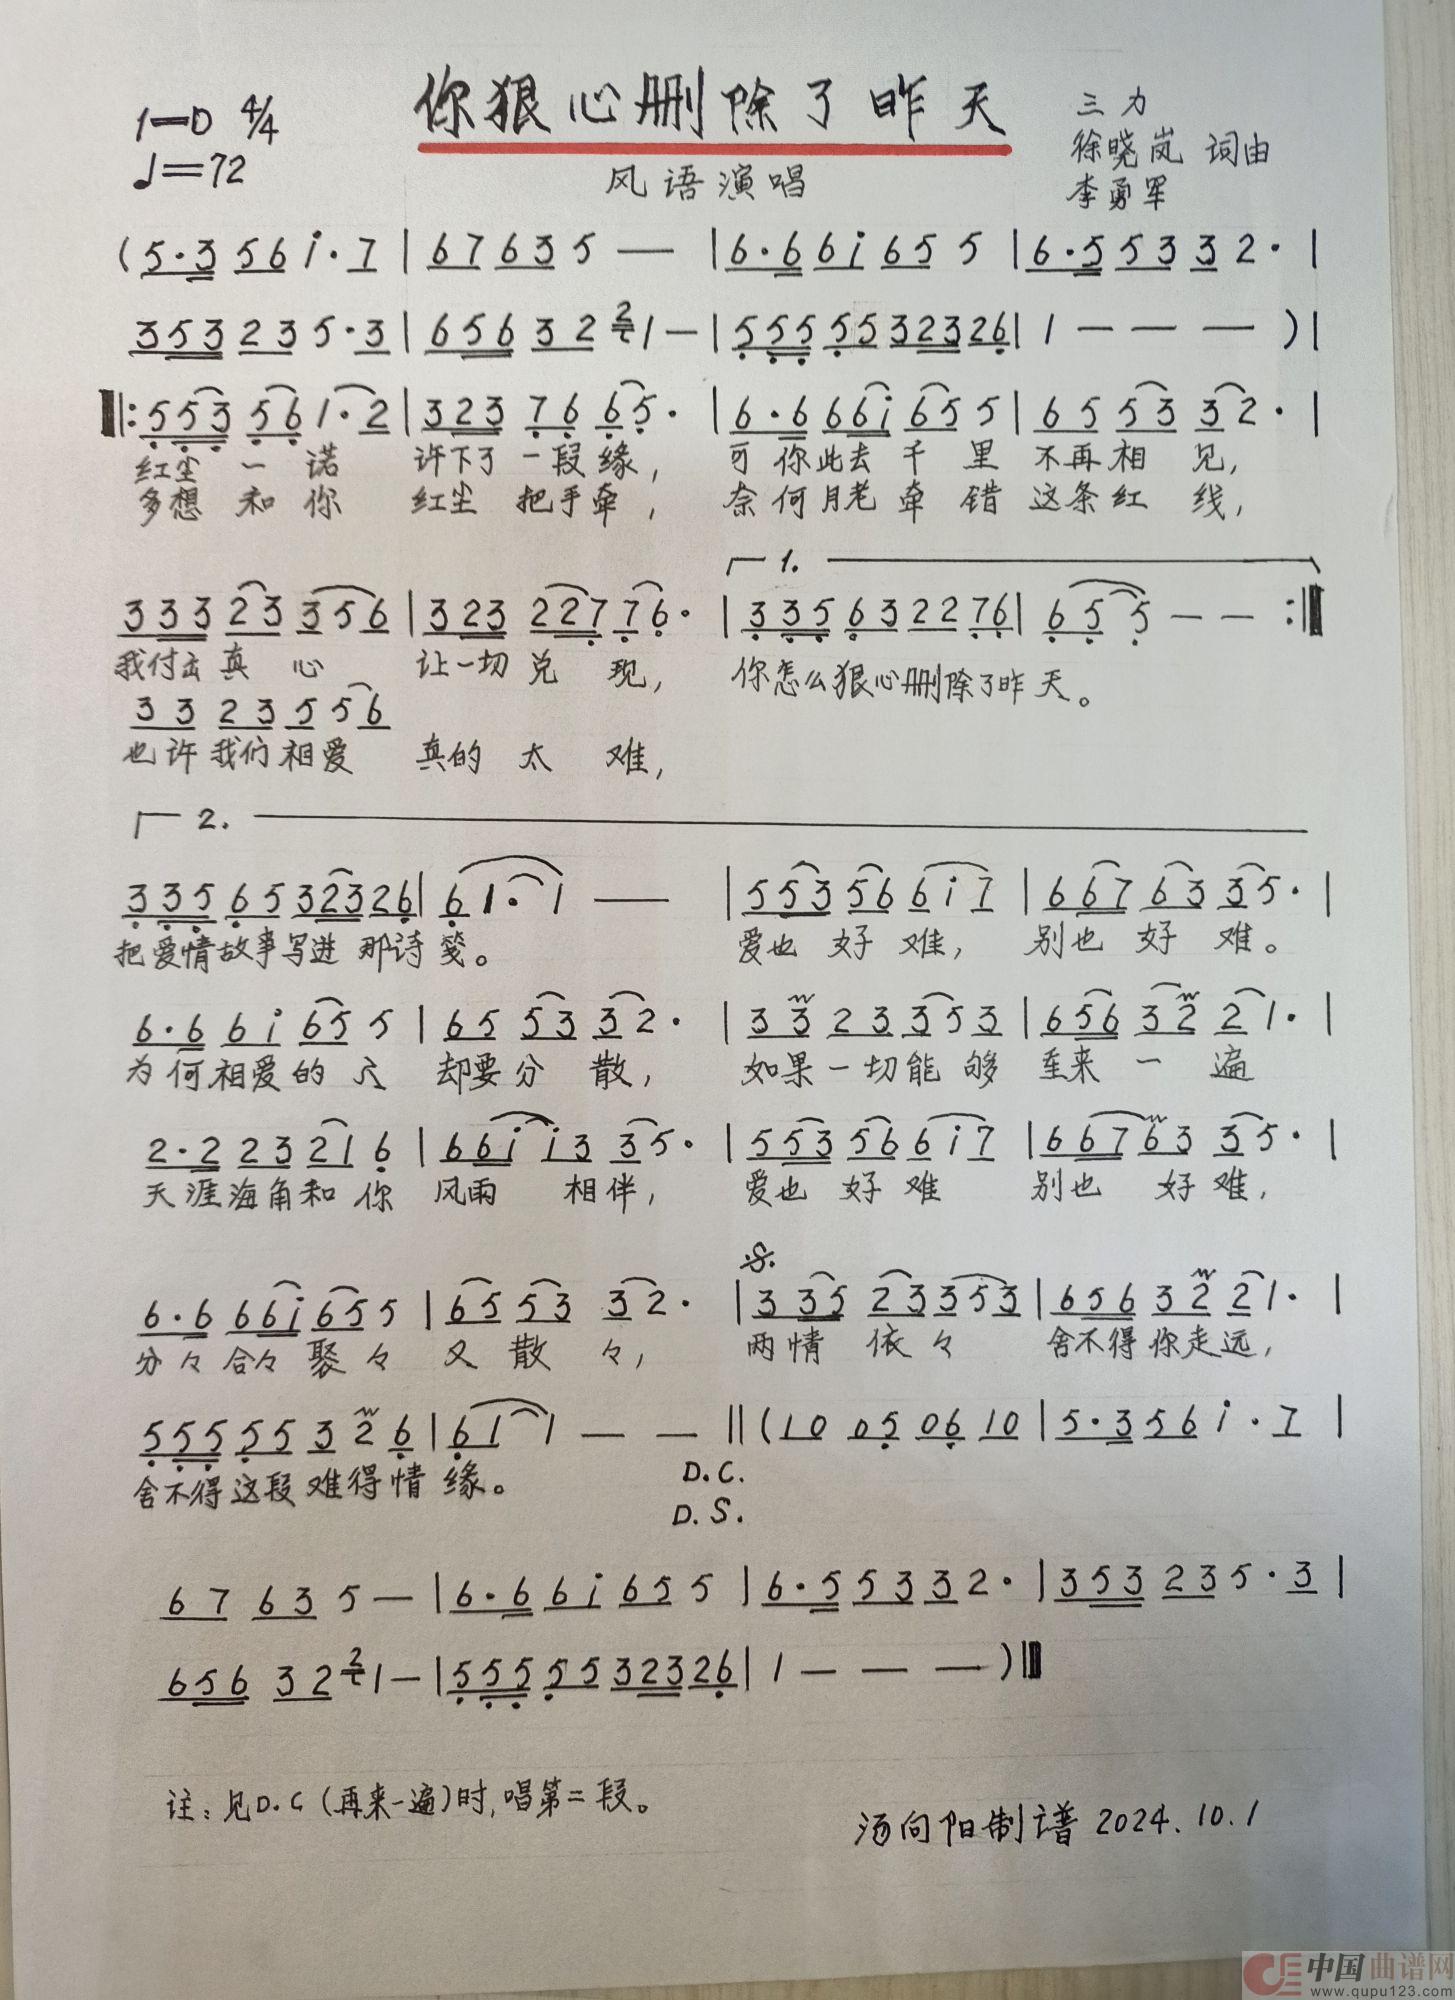 你狠心删除了昨天
1=D 4/4
♩=72
三力
徐晓岚 词曲
李勇军
风语演唱
(5·3 56 i·7 | 67 63 5 — | 6·6 6i 65 5 | 6·5 53 3 2· |
353 23 5·3 | 656 32 2 1 — | 555 55 323 26 | 1 — — — ) |
‖: 553 56 1·2 | 323 76 65· | 6·6 66i 65 5 | 65 53 32· |
红尘 一 诺 许下了 一段缘, 可 你此去 千 里 不再相 见,
多想 和 你 红尘 把手牵, 奈何月老 牵 错 这条红 线,
1.
333 23 356 | 323 227 76· | 335 63 22 76 | 65 5 — — :‖
我付出真 心 让一切 兑 现, 你怎么狠心删除了昨天。
33 23 5 56
也许我们相爱 真的 太 难,
2.
335 65 323 26 | 6 1· 1 — | 553 56 6i7 | 667 63 35· |
把爱情故事写进 那诗笺。 爱也 好 难, 别也 好 难。
6·6 6i 65 5 | 65 53 32· | 33 23 353 | 656 32 21· |
为何相爱的 人 却要分 散, 如果一切能 够 重来 一 遍
2·2 23 21 6 | 66i i3 35· | 553 56 6i7 | 667 63 35· |
天涯海角和你 风雨 相伴, 爱也 好 难 别也 好难,
𝄋
6·6 66i 65 5 | 65 53 32· | 335 23 353 | 656 32 21· |
分々合々 聚々 又 散 々, 两情 依々 舍不得你走远,
555 55 3 2 6 | 61 1 — — ‖ (10 05 06 10 | 5·3 56 i·7 |
舍不得这段难得情 缘。 D.C.
D.S.
67 63 5 — | 6·6 6i 65 5 | 6·5 53 3 2· | 353 23 5·3 |
656 32 2 1 — | 555 55 323 26 | 1 — — — ) ‖
注:见D.C(再来一遍)时,唱第二段。
汤向阳制谱 2024.10.1
中国曲谱网
www.qupu123.com